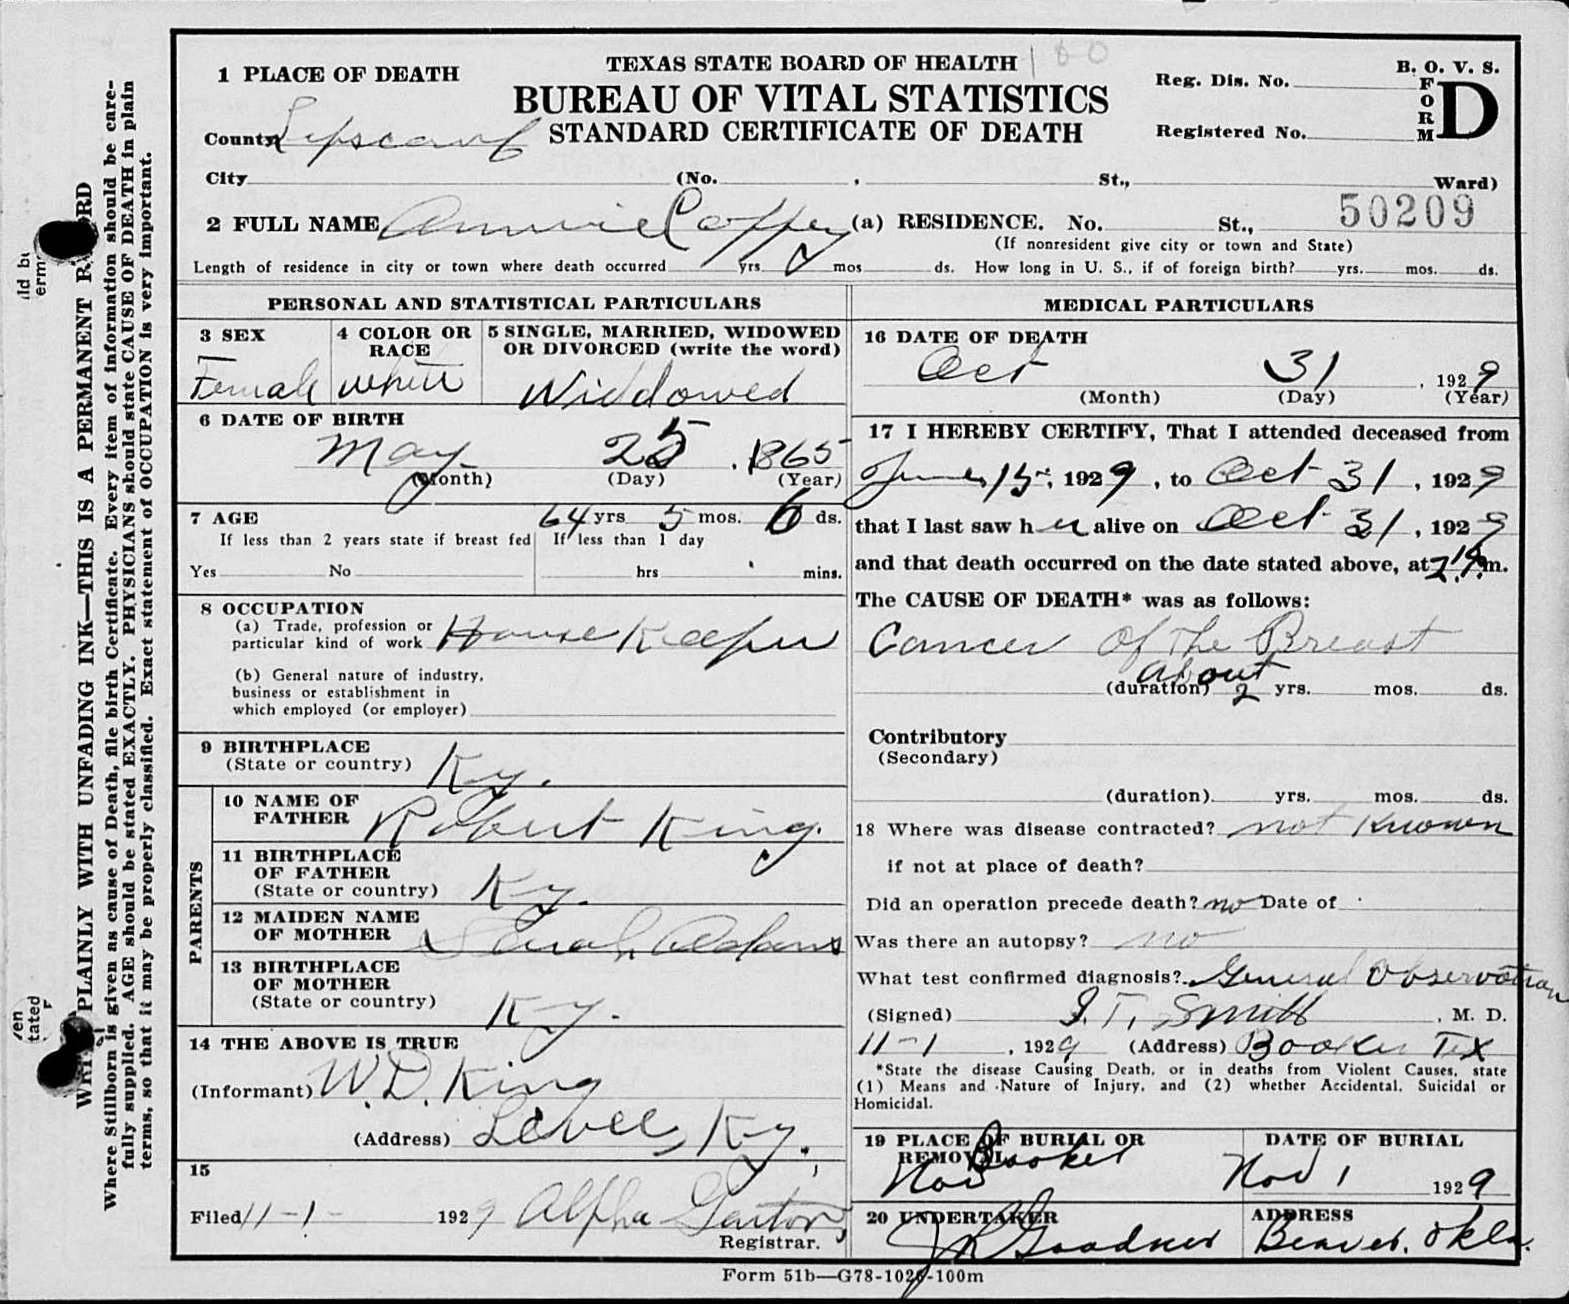 TEXAS STATE BOARD OF HEALTH
BUREAU OF VITAL STATISTICS
STANDARD CERTIFICATE OF DEATH
Reg. Dis. No.
Registered No.
B. O. V. S.
FORM D
1 PLACE OF DEATH
County Lipscomb
City (No. , St., Ward)
50209
2 FULL NAME Annie Coffey (a) RESIDENCE. No. St.,
(If nonresident give city or town and State)
Length of residence in city or town where death occurred yrs. mos. ds. How long in U. S., if of foreign birth? yrs. mos. ds.
PERSONAL AND STATISTICAL PARTICULARS
3 SEX
Female
4 COLOR OR RACE
white
5 SINGLE, MARRIED, WIDOWED OR DIVORCED (write the word)
Widdowed
6 DATE OF BIRTH
May 25, 1865
(Month) (Day) (Year)
7 AGE 64 yrs 5 mos. 6 ds.
If less than 2 years state if breast fed If less than 1 day
Yes No hrs mins.
8 OCCUPATION
(a) Trade, profession or
particular kind of work House Keeper
(b) General nature of industry,
business or establishment in
which employed (or employer)
9 BIRTHPLACE
(State or country) Ky.
PARENTS
10 NAME OF
FATHER Robert King.
11 BIRTHPLACE
OF FATHER
(State or country) Ky.
12 MAIDEN NAME
OF MOTHER Sarah Adams
13 BIRTHPLACE
OF MOTHER
(State or country) Ky.
14 THE ABOVE IS TRUE
(Informant) W.D. King
(Address) Levee, Ky.
15
Filed 11-1- 1929 Alpha Garton
Registrar.
MEDICAL PARTICULARS
16 DATE OF DEATH
Oct 31, 1929
(Month) (Day) (Year)
17 I HEREBY CERTIFY, That I attended deceased from
June, 15, 1929, to Oct 31, 1929
that I last saw her alive on Oct 31, 1929
and that death occurred on the date stated above, at m.
The CAUSE OF DEATH* was as follows:
Cancer of the Breast
About
(duration) 2 yrs. mos. ds.
Contributory
(Secondary)
(duration) yrs. mos. ds.
18 Where was disease contracted? not known
if not at place of death?
Did an operation precede death? no Date of
Was there an autopsy? no
What test confirmed diagnosis? General Observation
(Signed) I. T. Smith, M. D.
11-1, 1929 (Address) Booker Tex
*State the disease Causing Death, or in deaths from Violent Causes, state
(1) Means and Nature of Injury, and (2) whether Accidental, Suicidal or
Homicidal.
19 PLACE OF BURIAL OR
REMOVAL
Booker
Nov
DATE OF BURIAL
Nov 1 1929
20 UNDERTAKER
Goodner
ADDRESS
Beaver, Okla.
Form 51b—G78-1026-100m
PLAINLY WITH UNFADING INK—THIS IS A PERMANENT RECORD
Where Stillborn is given as cause of Death, file birth Certificate. Every item of information should be care-
fully supplied. AGE should be stated EXACTLY. PHYSICIANS should state CAUSE OF DEATH in plain
terms, so that it may be properly classified. Exact statement of OCCUPATION is very important.